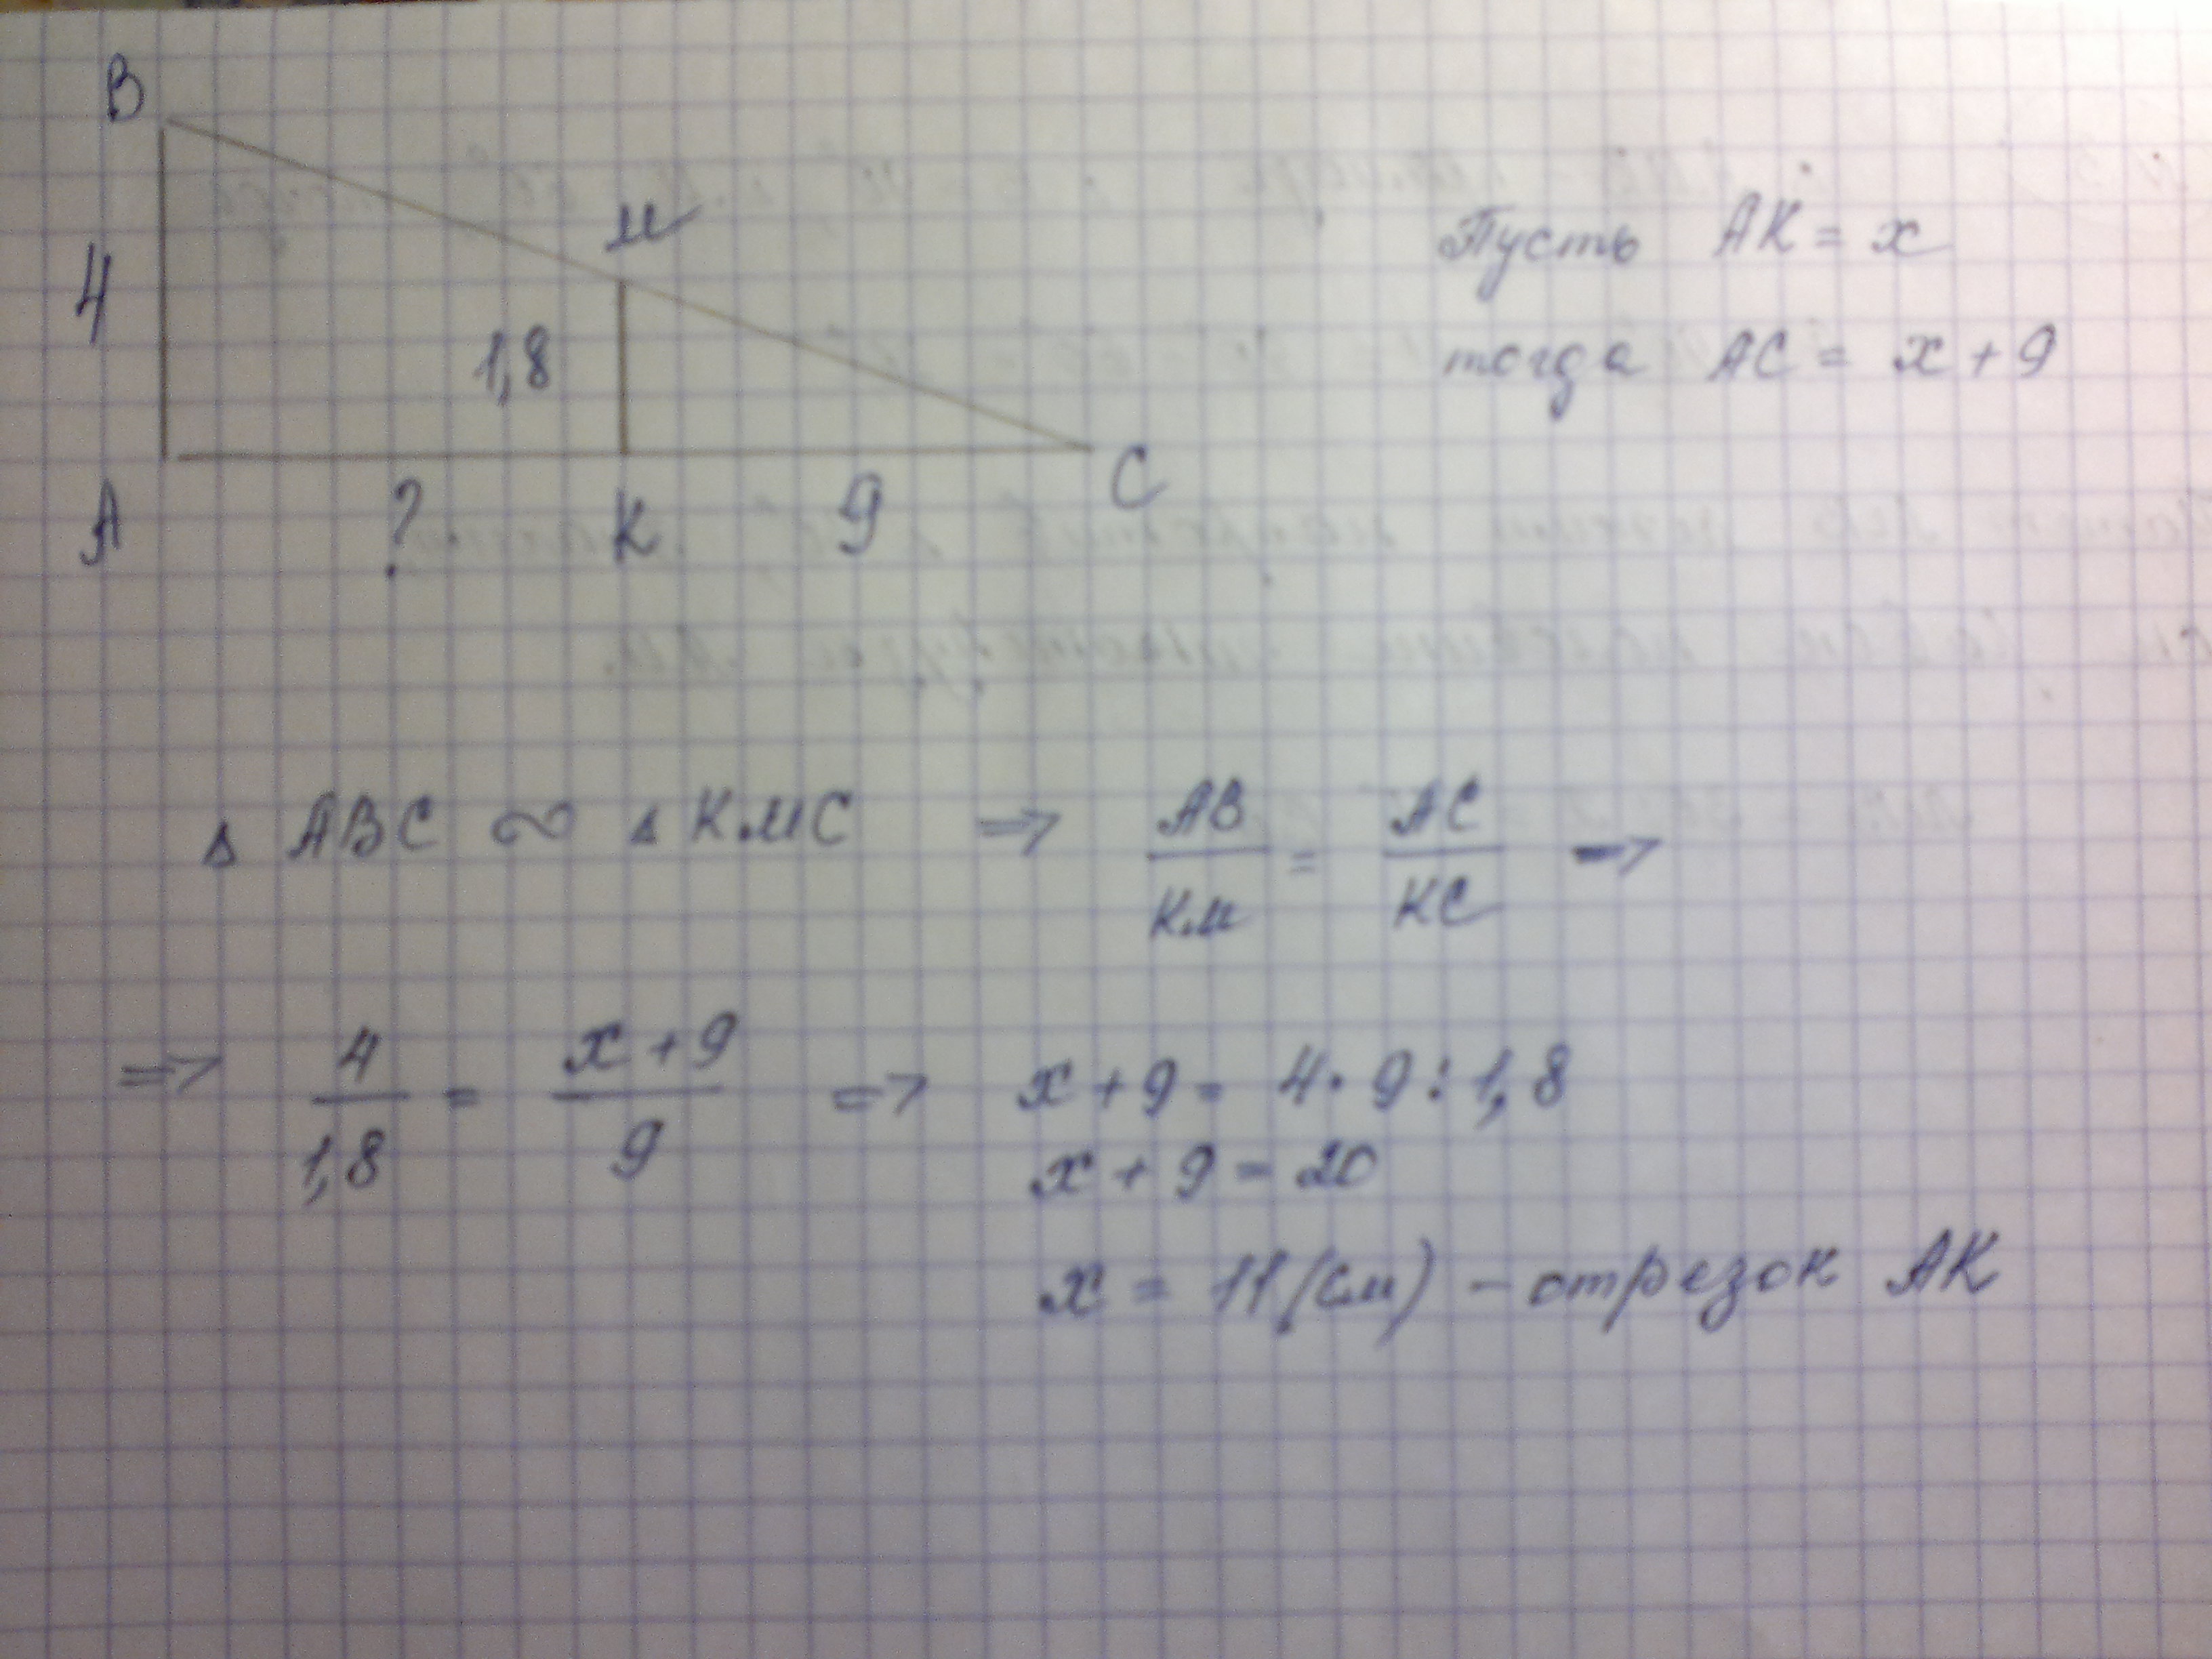 B
M
4
1,8
A ? K 9 C
Пусть AK = x
тогда AC = x + 9
△ ABC ∾ △ KMC => AB/KM = AC/KC =>
=> 4/1,8 = x+9/9 => x + 9 = 4 · 9 : 1,8
x + 9 = 20
x = 11 (см) – отрезок AK